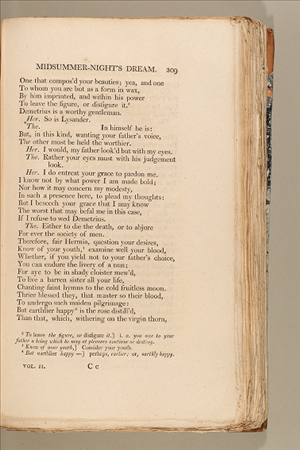 MIDSUMMER-NIGHT'S DREAM. 209
One that compos'd your beauties; yea, and one
To whom you are but as a form in wax,
By him imprinted, and within his power
To leave the figure, or disfigure it.²
Demetrius is a worthy gentleman.
Her. So is Lysander.
The. In himself he is:
But, in this kind, wanting your father's voice,
The other must be held the worthier.
Her. I would, my father look'd but with my eyes.
The. Rather your eyes must with his judgement
look.
Her. I do entreat your grace to pardon me.
I know not by what power I am made bold;
Nor how it may concern my modesty,
In such a presence here, to plead my thoughts:
But I beseech your grace that I may know
The worst that may befal me in this case,
If I refuse to wed Demetrius.
The. Either to die the death, or to abjure
For ever the society of men.
Therefore, fair Hermia, question your desires,
Know of your youth,³ examine well your blood,
Whether, if you yield not to your father's choice,
You can endure the livery of a nun;
For aye to be in shady cloister mew'd,
To live a barren sister all your life,
Chanting faint hymns to the cold fruitless moon.
Thrice blessed they, that master so their blood,
To undergo such maiden pilgrimage:
But earthlier happy⁴ is the rose distill'd,
Than that, which, withering on the virgin thorn,
² To leave the figure, or disfigure it.] i. e. you owe to your
father a being which he may at pleasure continue or destroy.
³ Know of your youth,] Consider your youth.
⁴ But earthlier happy —] perhaps, earlier; or, earthly happy.
VOL. II. C c